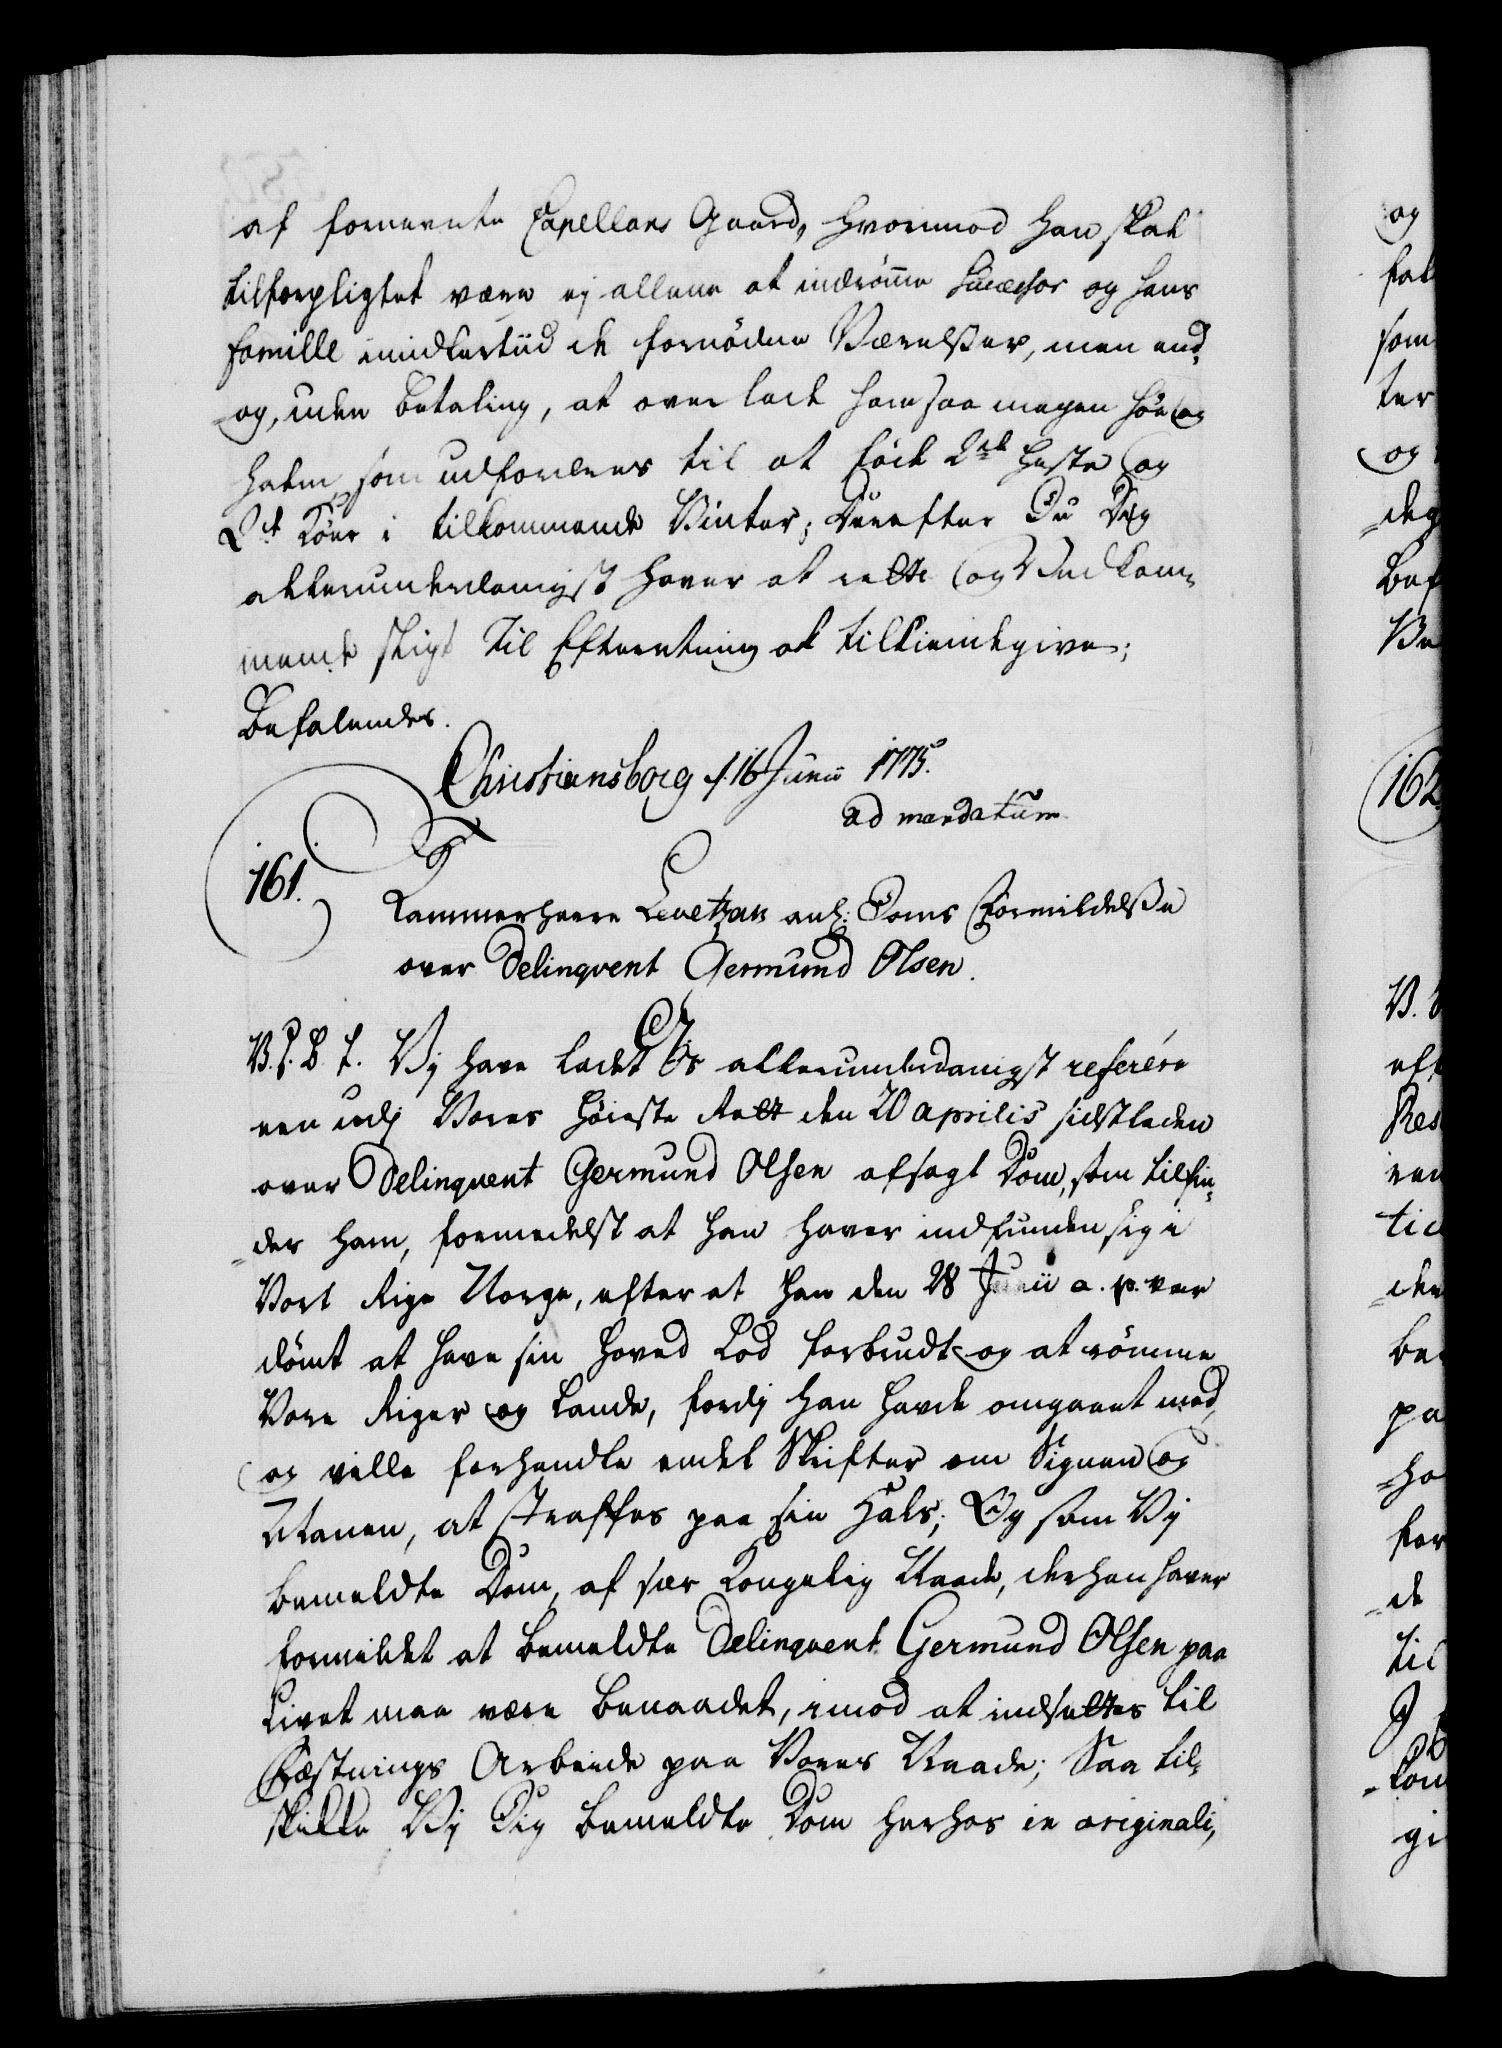 af fornevnte Capellans Gaard, hvorimod han skal
tilforpligtet være ej allene at indrömme Successor og hans
Familie imidlertiid de fornödne Værelsser, men end¬
og, uden Betaling, at overlade ham saa megen Höe og
Halm som udfordres til at föde 2de Heste og
2de Köer i tilkommende Vinter; Derefter Du Dig
allerunderdanigst haver at rette og Vedkom¬
mende sligt til Efterretning at tilkiendegive;
Befalendes.
Christiansborg d. 16 Junii 1775.
ad mandatum
161.
T
Kammerherre Levetzau anl: Doms Formildelsse
over Delinqvent Germund Olsen.
V. S. B. T. Vi have ladet Os allerunderdanigst referére
een udj Vores Höieste Rett den 20 Aprilis sidstleden
over Delinquent Germund Olsen afsagt Dom, som tilfin¬
der ham, formedelst at han haver indfunden sig i
Vort Rige Norge, efter at han den 28 Junii a. p. var
dömt at have sin Hoved Lod forbrudt og at römme
Vore Riger og Lande, fordj han havde omgaaet med,
og ville forhandle endel Skrifter om Signen og
Manen, at straffes paa sin Hals; Og som Vj
bemeldte Dom, af sær Kongelig Naade, derhen haver
formildet at bemeldte Delinquent Germund Olsen paa
Livet maa være benaadet, imod at indsettes til
Fæstnings Arbeide paa Vores Naade; Saa til¬
skikke Vj Dig bemeldte Dom herhos in originali,
og
som
ter
og
deg
Bef
162
V. S
eft
Res
een
tid
den
pa
ho
for
de
til
J
kom
gi